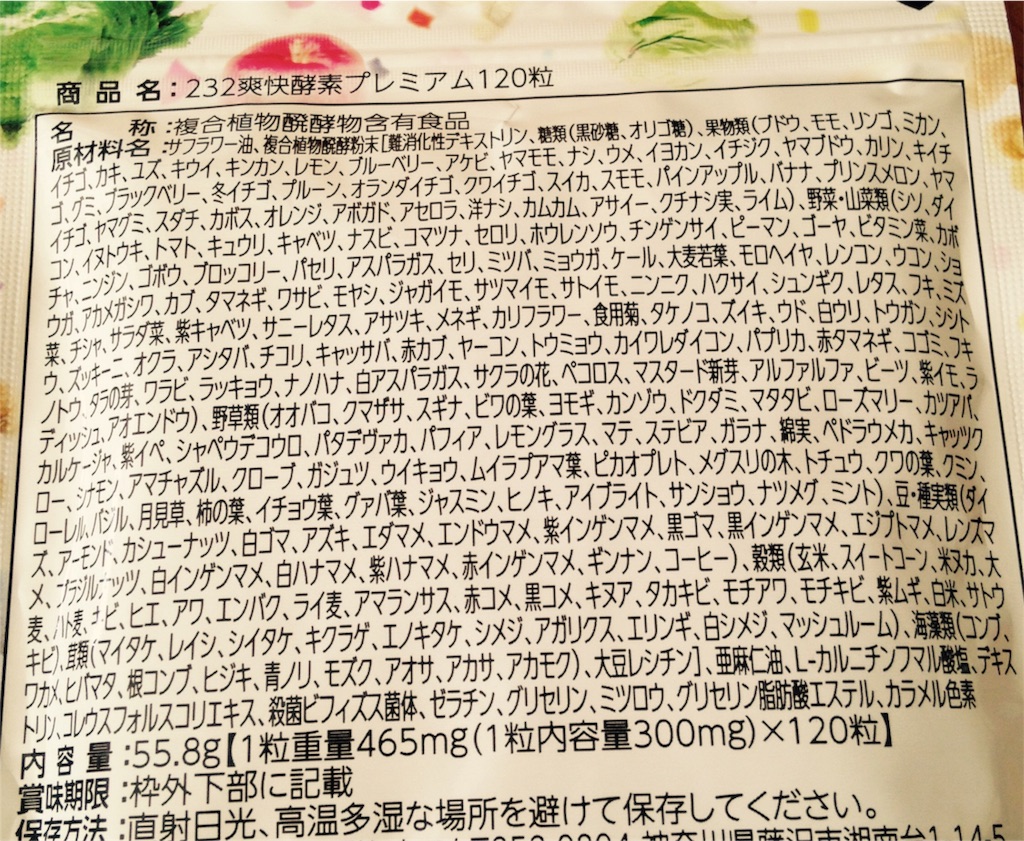 商品名:232爽快酵素プレミアム120粒
名称:複合植物醗酵物含有食品
原材料名:サフラワー油、複合植物醗酵粉末[難消化性デキストリン、糖類(黒砂糖、オリゴ糖)、果物類(ブドウ、モモ、リンゴ、ミカン、
イチゴ、カキ、ユズ、キウイ、キンカン、レモン、ブルーベリー、アケビ、ヤマモモ、ナシ、ウメ、イヨカン、イチジク、ヤマブドウ、カリン、キイチ
ゴ、グミ、ブラックベリー、冬イチゴ、プルーン、オランダイチゴ、クワイチゴ、スイカ、スモモ、パインアップル、バナナ、プリンスメロン、ヤマ
イチゴ、ヤマグミ、スダチ、カボス、オレンジ、アボガド、アセロラ、洋ナシ、カムカム、アサイー、クチナシ実、ライム)、野菜・山菜類(シソ、ダイ
コン、イヌトウキ、トマト、キュウリ、キャベツ、ナスビ、コマツナ、セロリ、ホウレンソウ、チンゲンサイ、ピーマン、ゴーヤ、ビタミン菜、カボ
チャ、ニンジン、ゴボウ、ブロッコリー、パセリ、アスパラガス、セリ、ミツバ、ミョウガ、ケール、大麦若葉、モロヘイヤ、レンコン、ウコン、ショ
ウガ、アカメガシワ、カブ、タマネギ、ワサビ、モヤシ、ジャガイモ、サツマイモ、サトイモ、ニンニク、ハクサイ、シュンギク、レタス、フキ、ミズ
菜、チシャ、サラダ菜、紫キャベツ、サニーレタス、アサツキ、メネギ、カリフラワー、食用菊、タケノコ、ズイキ、ウド、白ウリ、トウガン、シシト
ウ、ズッキーニ、オクラ、アシタバ、チコリ、キャッサバ、赤カブ、ヤーコン、トウミョウ、カイワレダイコン、パプリカ、赤タマネギ、コゴミ、フキ
ノトウ、タラの芽、ワラビ、ラッキョウ、ナノハナ、白アスパラガス、サクラの花、ペコロス、マスタード新芽、アルファルファ、ビーツ、紫イモ、ラ
ディッシュ、アオエンドウ)、野草類(オオバコ、クマザサ、スギナ、ビワの葉、ヨモギ、カンゾウ、ドクダミ、マタタビ、ローズマリー、カツアバ、
カルケージャ、紫イペ、シャペウデコウロ、パタデヴァカ、パフィア、レモングラス、マテ、ステビア、ガラナ、綿実、ペドラウメカ、キャッツク
ロー、シナモン、アマチャズル、クローブ、ガジュツ、ウイキョウ、ムイラプアマ葉、ピカオプレト、メグスリの木、トチュウ、クワの葉、クミン、
ローレル、バジル、月見草、柿の葉、イチョウ葉、グァバ葉、ジャスミン、ヒノキ、アイブライト、サンショウ、ナツメグ、ミント)、豆・種実類(ダイ
ズ、アーモンド、カシューナッツ、白ゴマ、アズキ、エダマメ、エンドウマメ、紫インゲンマメ、黒ゴマ、黒インゲンマメ、エジプトマメ、レンズマ
メ、ブラジルナッツ、白インゲンマメ、白ハナマメ、紫ハナマメ、赤インゲンマメ、ギンナン、コーヒー)、穀類(玄米、スイートコーン、米ヌカ、大
麦、ハト麦、キビ、ヒエ、アワ、エンバク、ライ麦、アマランサス、赤コメ、黒コメ、キヌア、タカキビ、モチアワ、モチキビ、紫ムギ、白米、サトウ
キビ)、茸類(マイタケ、レイシ、シイタケ、キクラゲ、エノキタケ、シメジ、アガリクス、エリンギ、白シメジ、マッシュルーム)、海藻類(コンブ、
ワカメ、ヒバマタ、根コンブ、ヒジキ、青ノリ、モズク、アオサ、アカサ、アカモク)、大豆レシチン]、亜麻仁油、L-カルニチンフマル酸塩、デキス
トリン、コレウスフォルスコリエキス、殺菌ビフィズス菌体、ゼラチン、グリセリン、ミツロウ、グリセリン脂肪酸エステル、カラメル色素
内容量:55.8g【1粒重量465mg(1粒内容量300mg)×120粒】
賞味期限:枠外下部に記載
保存方法:直射日光、高温多湿な場所を避けて保存してください。
神奈川県藤沢市湘南台1-14-5